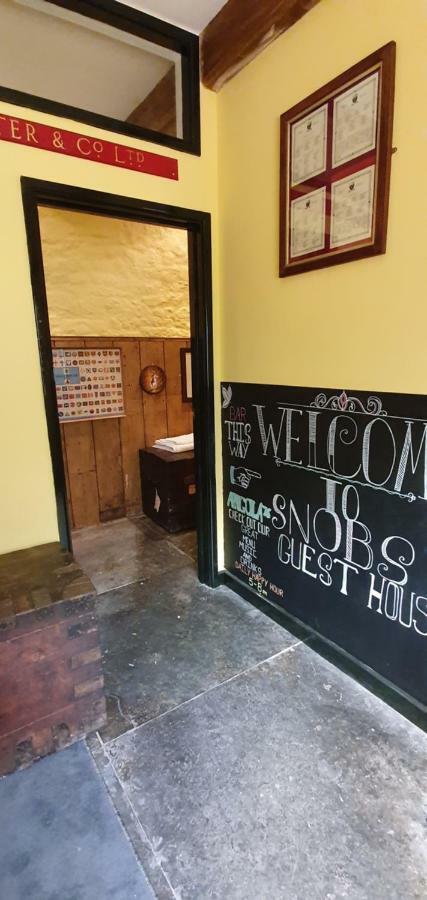 TER & CO LTD
BAR
THIS
WAY
ANGOLA'S
CHECK OUT OUR
GREAT
MENU
MUSIC
AND
DRINKS
DAILY HAPPY HOUR
5-8
WELCOM
TO
SNOBS
GUEST HOUS